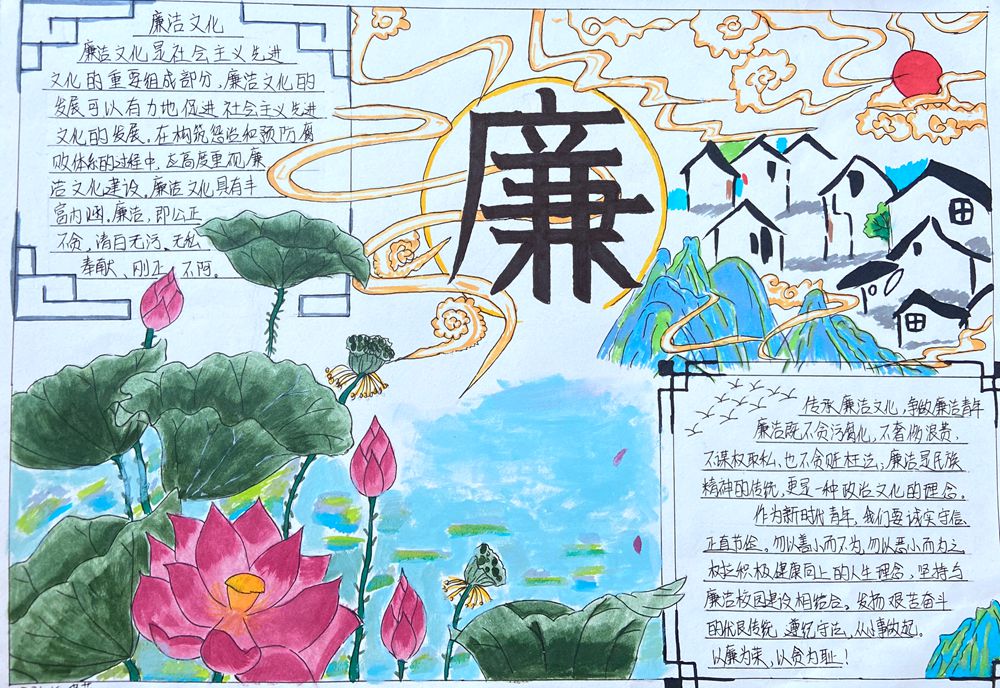 廉洁文化
廉洁文化是社会主义先进
文化的重要组成部分,廉洁文化的
发展可以有力地促进社会主义先进
文化的发展。在构筑惩治和预防腐
败体系的过程中,应高度重视廉
洁文化建设。廉洁文化具有丰
富内涵。廉洁,即公正
不贪、清白无污、无私
奉献、刚正不阿。
廉
传承廉洁文化,争做廉洁青年
廉洁既不贪污腐化,不奢侈浪费、
不谋权取私、也不贪赃枉法,廉洁是民族
精神的传统,更是一种政治文化的理念。
作为新时代青年,我们要诚实守信、
正直节俭。勿以善小而不为,勿以恶小而为之
树立积极健康向上的人生理念,坚持与
廉洁校园建设相结合。发扬艰苦奋斗
的优良传统 遵纪守法,从小事做起。
以廉为荣,以贪为耻!